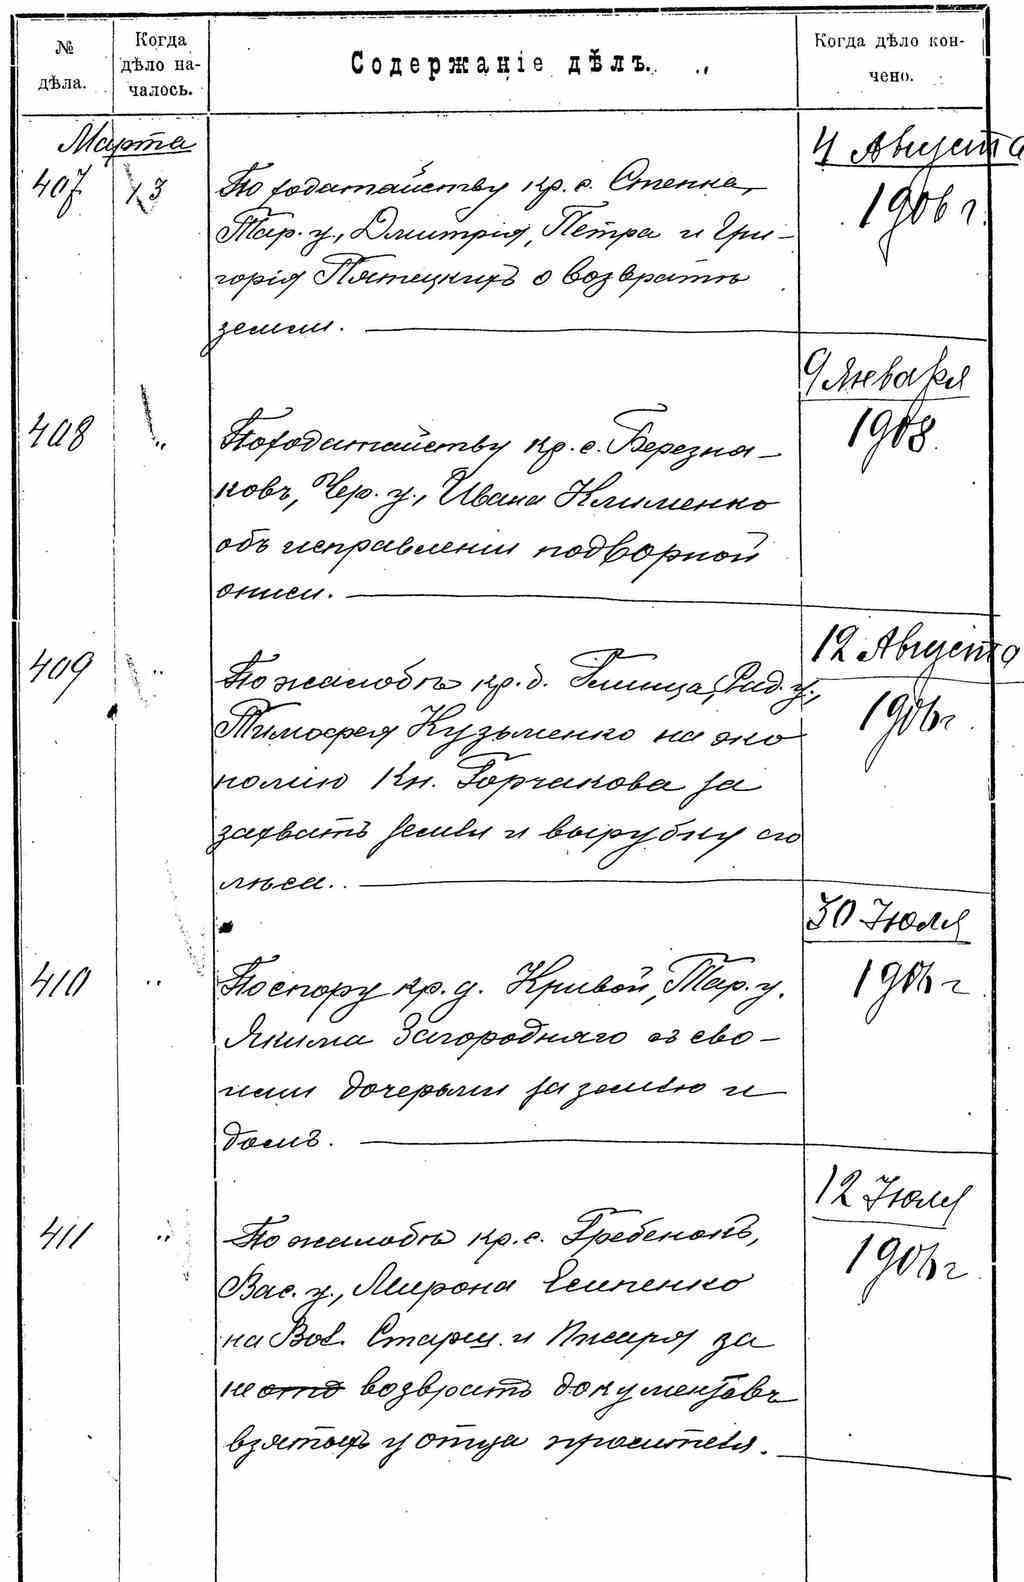 № дѣла.
Когда дѣло на-
чалось.
Содержаніе дѣлъ.
Когда дѣло кон-
чено.
Марта
4 Августа
407 13 По ходатайству кр. с. Стенка, 1906 г.
Тар. у., Дмитрія, Петра и Гри-
горія Пятецкихъ о возвратѣ
земли.
9 Января
408 " По ходатайству кр. с. Березня- 1908.
ковъ, Чер. у., Ивана Клименко
объ исправленіи подворной
описи.
12 Августа
409 " По жалобѣ кр. д. Глинца, Рад. у., 1906 г.
Тимофея Кузьменко на эко
номію Кн. Горчакова за
захватъ земли и вырубку его
лѣса.
30 Июля
410 " По спору кр. д. Кривой, Тар. у. 1906 г
Якима Загороднего съ сво-
ими дочерьми за землю и
домъ.
12 Июля
411 " По жалобѣ кр. с. Гребенокъ, 1906 г.
Вас. у., Мирона Есипенко
на Вол. Старш. и Писаря за
не отд возвратъ документовъ
взятыхъ у отца просителя.